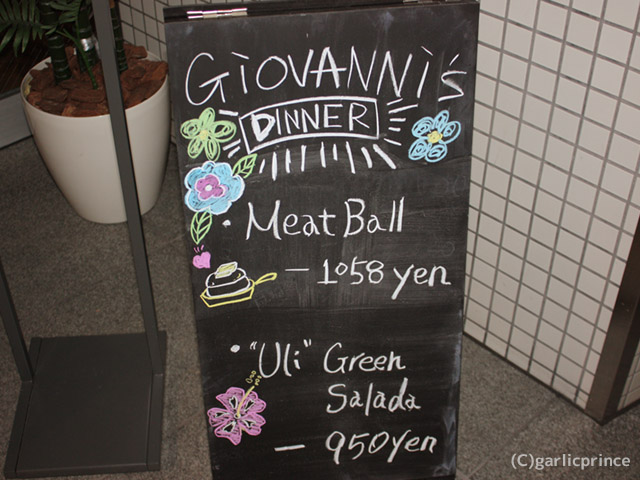 GiOVANNi's
DINNER
• Meat Ball
– 1058 yen
• "Uli" Green
Salada
– 950yen
(C)garlicprince